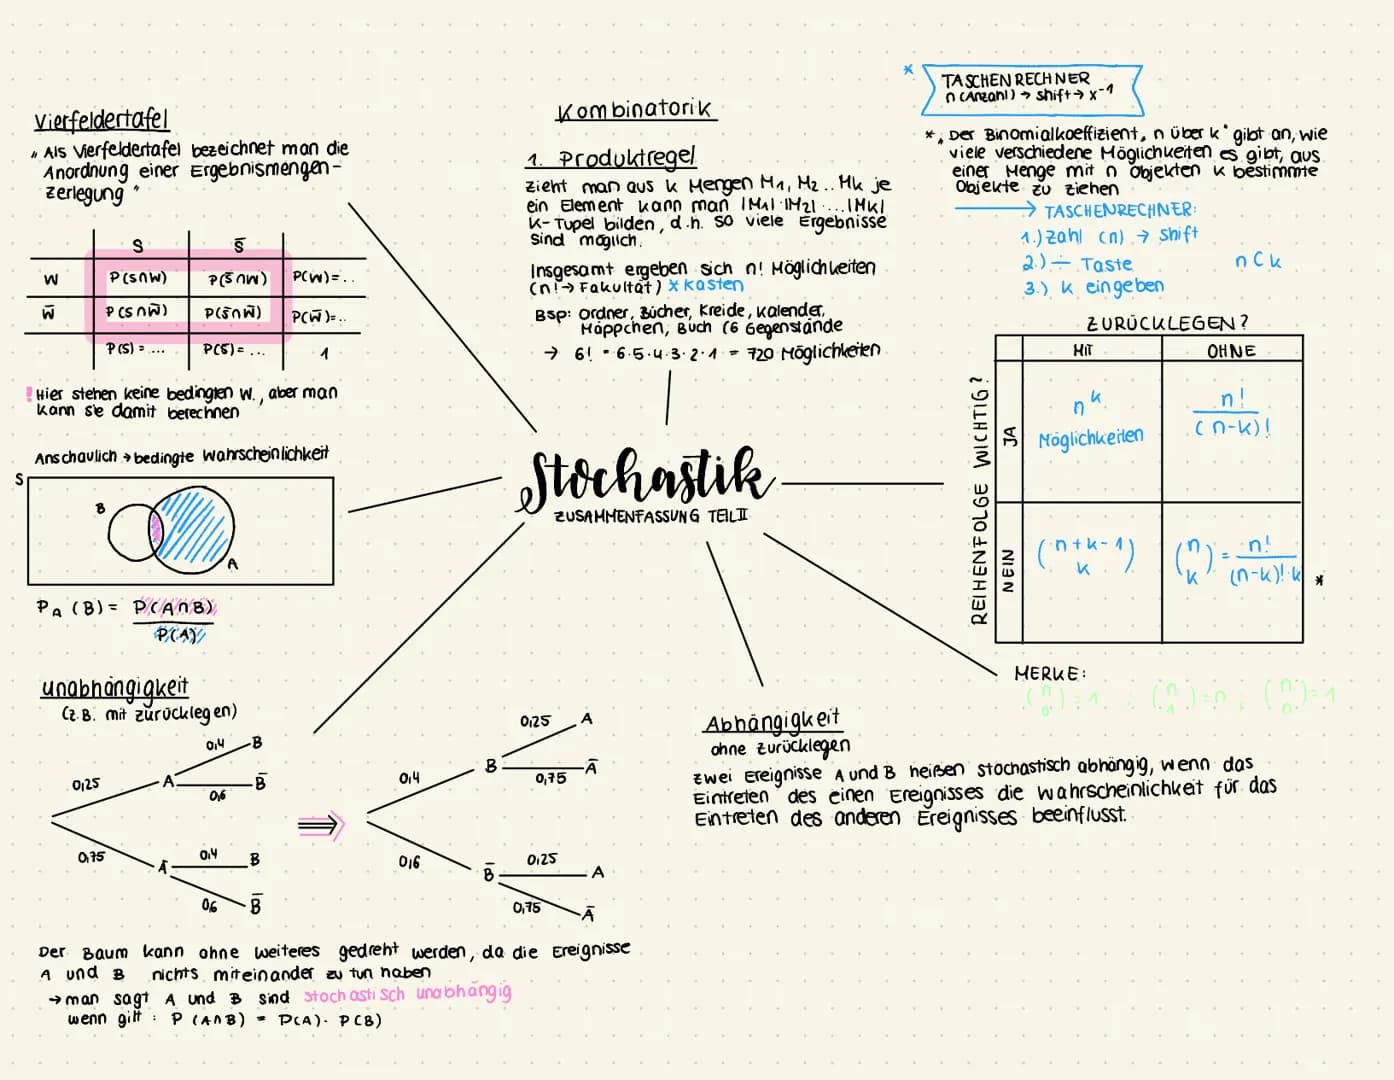 Vierfeldertafel
„Als Vierfeldertafel bezeichnet man die
Anordnung einer Ergebnismengen-
zerlegung"
S S̅
W P(S∩W) P(S̅∩W) P(W)=..
W̅ P(S∩W̅) P(S̅∩W̅) P(W̅)=..
P(S)=... P(S̅)=... 1
! Hier stehen keine bedingten W., aber man
kann sie damit berechnen
Anschaulich → bedingte Wahrscheinlichkeit
S
B
A
P_A (B) = P(A∩B)
P(A)
unabhängigkeit
(z.B. mit zurücklegen)
0,25
0,75
A
A̅
0,4
0,6
B
B̅
0,4
0,6
B
B̅
⇒
0,4
0,6
B
B̅
0,25
0,75
A
A̅
0,25
0,75
A
A̅
Der Baum kann ohne weiteres gedreht werden, da die Ereignisse
A und B nichts miteinander zu tun haben
→ man sagt A und B sind stochastisch unabhängig
wenn gilt : P (A∩B) = P(A) · P(B)
Kombinatorik
1. Produktregel
Zieht man aus k Mengen M1, M2 .. Mk je
ein Element kann man |M1|·|M2|·...·|Mk|
K-Tupel bilden, d.h. so viele Ergebnisse
sind möglich.
Insgesamt ergeben sich n! Möglichkeiten
(n! → Fakultät) * Kasten
Bsp: Ordner, Bücher, Kreide, Kalender,
Mäppchen, Buch (6 Gegenstände
→ 6! = 6·5·4·3·2·1 = 720 Möglichkeiten
Stochastik
ZUSAMMENFASSUNG TEIL II
* TASCHENRECHNER
n (Anzahl) → shift → x⁻¹
*, Der Binomialkoeffizient „n über k" gibt an, wie
viele verschiedene Möglichkeiten es gibt, aus
einer Menge mit n Objekten k bestimmte
Objekte zu ziehen
→ TASCHENRECHNER:
1.) Zahl (n) → shift
2.) ÷ Taste nCk
3.) k eingeben
ZURÜCKLEGEN?
MIT OHNE
REIHENFOLGE WICHTIG?
JA
n^k
Möglichkeiten
n!
(n-k)!
NEIN
(n+k-1)
k
(n k) = n!
(n-k)!·k *
MERKE:
(n 0)=1 ; (n 1)=n ; (n n)=1
Abhängigkeit
ohne zurücklegen
Zwei Ereignisse A und B heißen stochastisch abhängig, wenn das
Eintreten des einen Ereignisses die Wahrscheinlichkeit für das
Eintreten des anderen Ereignisses beeinflusst.